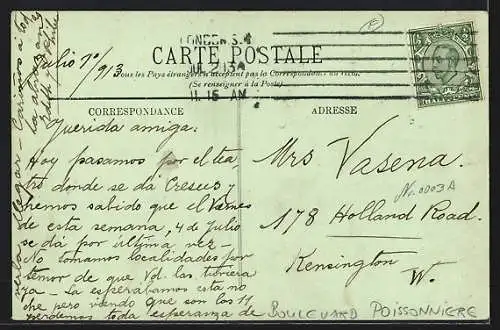 Julio 1º/913
LONDON S.W.
JUL 2 13
11.15 AM
CARTE POSTALE
Tous les Pays étrangers n'acceptent pas la Correspondance au recto.
(Se renseigner à la Poste)
CORRESPONDANCE
ADRESSE
Querida amiga:
Hoy pasamos por el tea-
tro donde se dá Cresus y
hemos sabido que el Viernes
de esta semana, 4 de Julio
se dá por última vez-
No tomamos localidades por
temor de que Vd. las tuviera
ya- La esperábamos esta no
che pero viendo que son las 11,
perdemos toda esperanza de
verla llegar- Cariños a
Mrs Vasena.
No. 0003A
178 Holland Road.
Kensington
W.
BOULEVARD POISSONNIERE